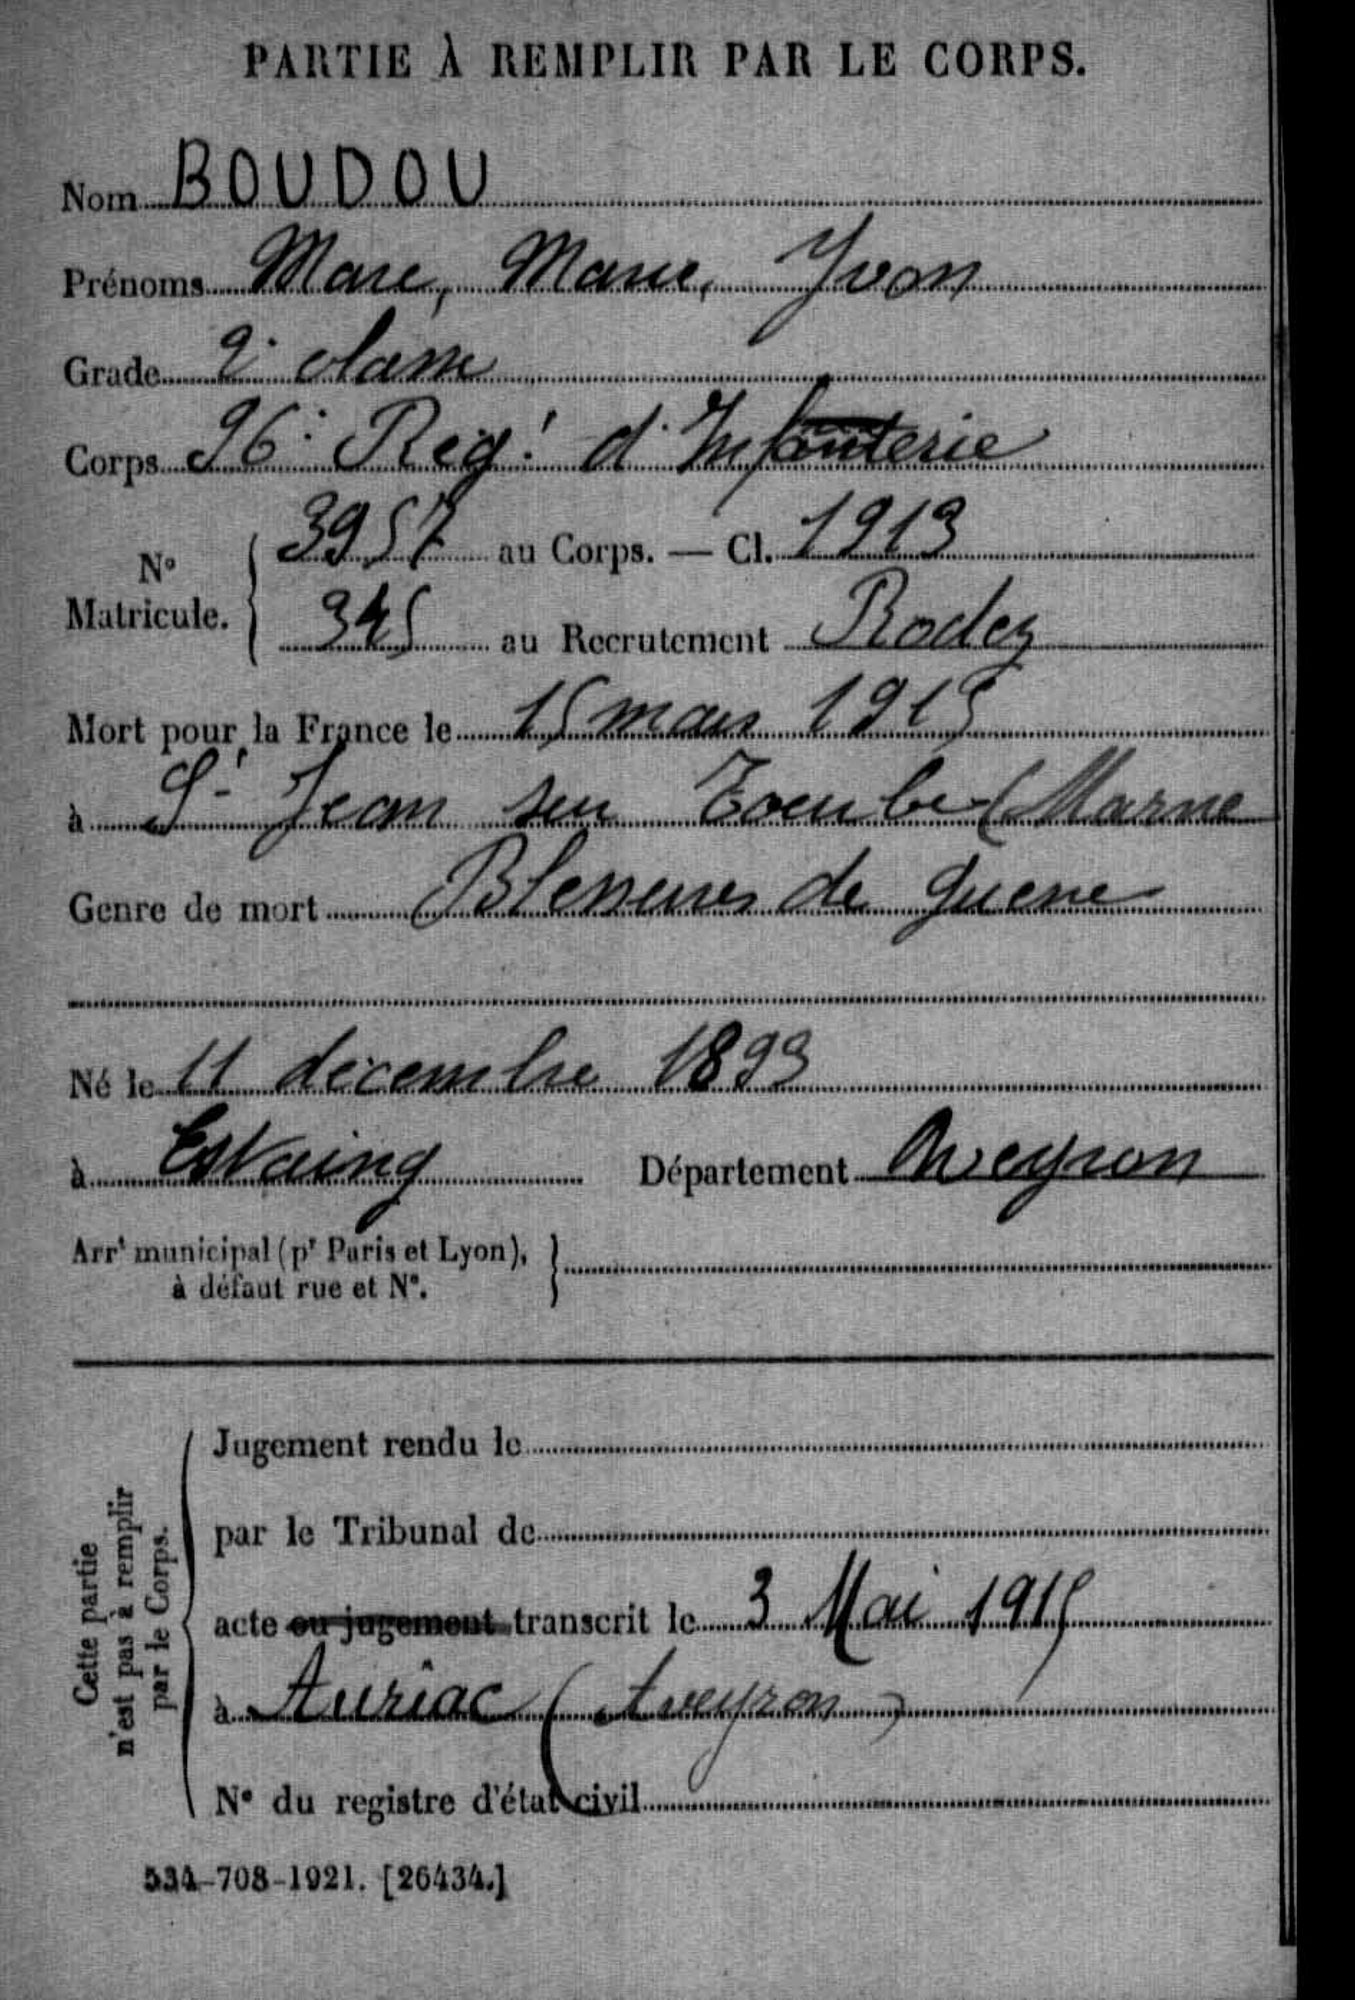 PARTIE À REMPLIR PAR LE CORPS.
Nom BOUDOU
Prénoms Marc, Marie, Yvon
Grade 2e classe
Corps 96e Régt d'Infanterie
No Matricule. 3957 au Corps. — Cl. 1913
345 au Recrutement Rodez
Mort pour la France le 15 mars 1915
à St Jean sur Tourbe (Marne
Genre de mort Blessures de guerre
Né le 11 décembre 1893
à Estaing Département Aveyron
Arrt municipal (pr Paris et Lyon),
à défaut rue et N°.
Cette partie
n'est pas à remplir
par le Corps.
Jugement rendu le
par le Tribunal de
acte ou jugement transcrit le 3 Mai 1915
à Auriac (Aveyron)
N° du registre d'état civil
534-708-1921. [26434.]